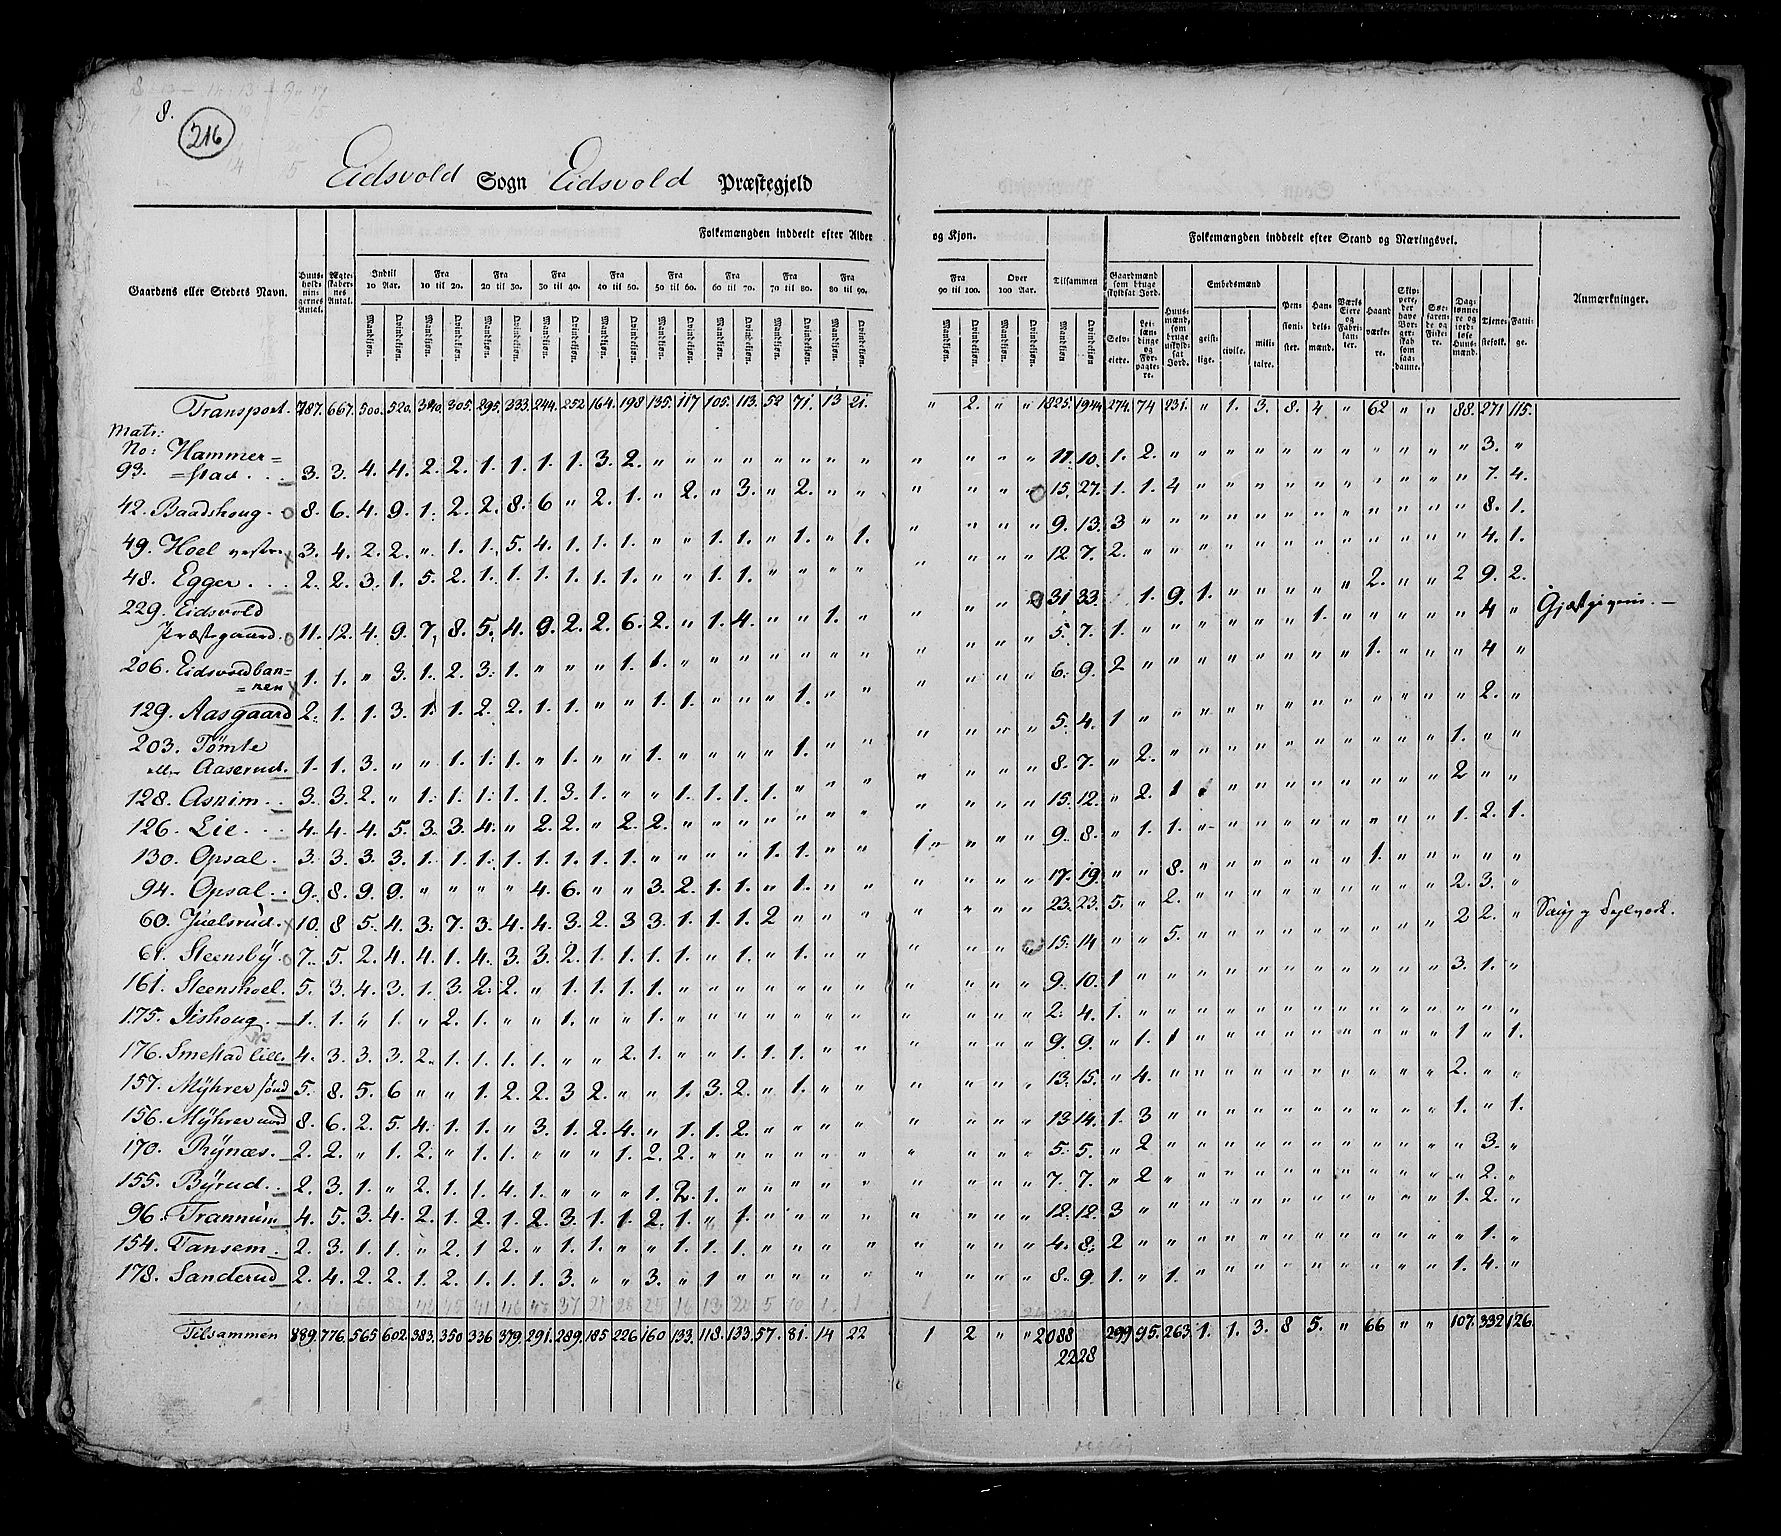 8.
216
Eidsvold Sogn Eidsvold Præstegjeld
Folkemængden inddeelt efter Alder og Kjøn. Folkemængden inddeelt efter Stand og Næringsvei.
Gaardens eller Stedets Navn. Huusholdningernes Antal. Ægteskabernes Antal. Indtil 10 Aar. Fra 10 til 20. Fra 20 til 30. Fra 30 til 40. Fra 40 til 50. Fra 50 til 60. Fra 60 til 70. Fra 70 til 80. Fra 80 til 90. Fra 90 til 100. Over 100 Aar. Tilsammen Gaardmænd som bruge skyldsat Jord. Huusmænd, som bruge uskyldsat Jord. Embedsmænd Pensionister. Handelsmænd. Værks Eiere og Fabrikanter. Haandværkere. Skippere, der have Borgerskab som saadanne. Søefarende og Fiskere. Daglønnere og jordløse Huusmænd. Tjenestefolk. Fattige. Anmærkninger.
Mandkjøn. Qvindekjøn. Selveiere. Leilændinge og Forpagtere. geistlige. civile. militaire.
Transport. 787. 667. 500. 520. 340. 305. 295. 333. 244. 252 164. 198 135. 117 105. 113. 52 71. 13 21. " 2. " " 1825. 1944 274. 74 231. " 1. 3. 8. 4 " 62 " " 88. 271 115.
Matr:
No: Hammer=
93. =stad. 3. 3. 4. 4. 2. 2. 1. 1. 1. 1. 3. 2. " " " " " " " " " " " " 11. 10. 1. 2. " " " " " " " " " " " 3. "
42. Baadshoug. 8. 6. 4. 9. 1. 2. 2. 8. 6 " 2. 1. " 2. " 3. " 2. " " " " " " 15. 27. 1. 1. 4 " " " " " " " " " " 7. 4.
49. Hoel vestre 3. 4. 2. 2. " 1. 1. 5. 4. 1. 1. 1. " " 1. 1. " 1. " 1. " " " " 9. 13. 3 " " " " " " " " " " " " 8. 1.
48. Egger. 2. 2. 3. 1. 5. 2. 1. 1. 1. 1. 1. 1. " " 1. 1. " " " " " " " 12. 7. 2. " " " " " " " " " " " " 4. 1.
229. Eidsvold
Præstegaard. 11. 12. 4. 9. 7. 8. 5. 4. 9. 2. 2. 6. 2. " 1. 4. " " 1. " " " " 31. 33. 1. 9. 1. " " " " " 2. " " 2 9. 2. Gjæstgiverie.
206. Eidsvoldban=
=nen 1. 1. " 3. 1. 2. 3. 1. " " " 1. 1. " " " " " " " " " " " 5. 7. 1. " " " " " " 1. " " " " " 4 "
129. Aasgaard 2. 1. 1. 3. 1. 1. 2. 2. 1. 1. " " 1. 1. " " " 1. " " " " " " 6. 9. 2 " " " " " " " " 1. " " " 4 "
203. Tømte
eller Aaserud. 1. 1. 3. " " 1. 1. 1. " 1. " " 1. " " " " 1. " " " " " " 5. 4. 1 " " " " " " " " " " " " 2. "
128. Asnim. 3. 3. 2. " 1. 1. 1. 1. 1. 3. 1. " " 1. 1. 1. 1. " " " " " " " 8. 7. " 2. " " " " " " " " " " 1. " "
126. Lie. 4. 4. 4. 5. 3. 3. 4. " 2. 2. " 2. 2. " " " " " " " " " " " 15. 12. " 2. 1 " " " " " " " " " 2 " "
130. Opsal. 3. 3. 3. 3. 1. 1. 1. 1. 1. 1. 1. 1. " " " " 1. 1. " " 1. " " " 9. 8. " 1. 1. " " " " " " " " " 1. 2. 1.
94. Opsal. 9. 8. 9. 9. " " " " 4. 6. " " 3. 2. 1. 1. " 1. " " " " " " 17. 19. " " 8. " " " " " " 1. " " " " "
60. Juelsrud. 10. 8 5. 4. 3. 7. 3. 4. 4. 3. 2. 3 3. 1. 1. 1. 2 " " " " " " " 23. 23. 5. " 2. " " " " " " " " " 2. 3. " Saug og
61. Steensby. 7. 5. 2. 4. 4. 1. 4. 3. 3. 2. 1. 1. 1. 1. " 1. " 1. " " " " " 15. 14 " " 5. " " " " " " " " " 2 2. "
161. Steenshoel. 5. 3. 4. 3. 1. 3. 2. 2. " 1. 1. 1. 1. " " " " " " " " " " " 9. 10. 1 " " " " " " " " " " " 3. 1. "
175. Iishoug. 1. 1. " 1. " 2. 1. " " 1. " " 1. " " " " " " " " " " " 2. 4. 1. " " " " " " " " " " " " " "
176. Smestad lille 4. 3. 3. 3. 2. 1. 1. 1. 1. " " 2. 1. " " 1. 1. 1. " " " " " " 9. 9. " 1. 1 " " " " " " " " " 1 " 1.
157. Myhrer sønd 5. 8. 5. 6 " " 1. 2. 2. 3 2. " " 1. 3. 2. " 1. " " " " " " 13. 15. " 4. " " " " " " " " " " 2. " "
156. Myhrer nord 8. 6. 2. 5. 4. 1. 1. " 3. 1. 2. 4. " 1. 1. 2. " " " " " " " " 13 14. 1. 3 " " " " " " " " " " 1. " 1.
170. Rynæs. 2. 2. " 1. 2. " 1. 1. " " " 1. 2. 2. " " " " " " " " " " 5. 5. " 2 " " " " " " " " " " " 3. "
155. Byrud. 2. 3. 1. " 2. 1. 1. 4. 1. " " " 1. 2. 1. " " " " " " " " " 7. 7. " 2 " " " " " " " " " " " 2. "
96. Trannum 4. 5. 3. 4. 2. 1. 2. 1. 2. 3. 1. 1. 2. 1. " 1. " " " " " " " " 12. 12. 3 " " " " " " " " " " " 1. 2. "
154. Tansem. 2. 3. 1. 1. " 2. 1 2. " 1. 1. " " 1. 1. 1. " " " " " " " " 4. 8. 2 " " " " " " " " " " " " 1. "
178. Sanderud 2. 4. 2. 2. 1. 2. 1. 1. 1. 3. " " 3. " 1 " " " " " " " " " 8. 9. 1. " 1. " " " " " " " " " 1. 4. "
Tilsammen 889. 776. 565 602. 383. 350 336 379. 291. 289. 185 226 160 133. 118. 133. 57. 81. 14 22 1 2 " " 2088 299 95. 263. 1. 1. 3. 8 5. " 66 " " 107. 332 126.
2228